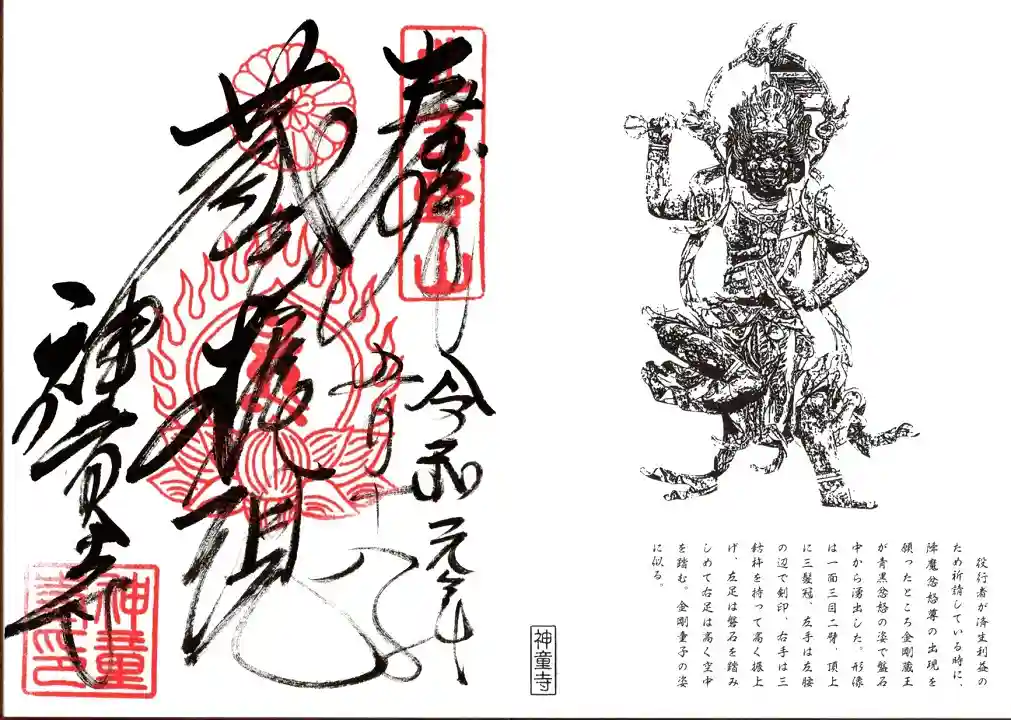 役行者が済生利益の
ため祈請している時に、
降魔忿怒尊の出現を
願ったところ金剛蔵王
が青黒忿怒の姿で盤石
中から湧出した。形像
は一面三目二臂、頂上
に三髪冠、左手は左腰
の辺で剣印、右手は三
鈷杵を持って高く振上
げ、左足は盤石を踏み
しめて右足は高く空中
を踏む。金剛童子の姿
に似る。
神童寺
奉拝
北吉野山
令和元年
五月十
蔵王権現
神童寺
神童寺印